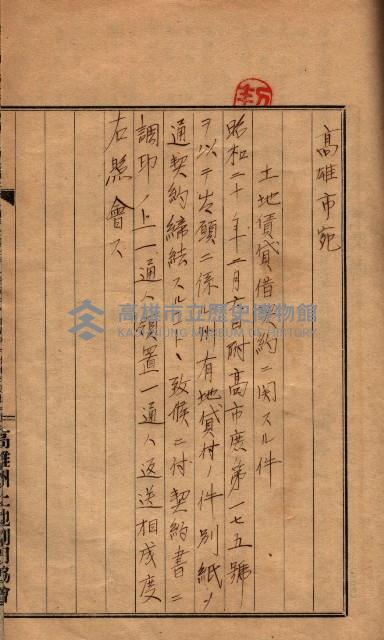 高雄市宛
土地賃貸借契約ニ関スル件
昭和二十年二月六日附高市庶第一七五號
ヲ以テ出願ニ係ル州有地貸付ノ件別紙ノ
通契約締結スルコトヽ致候ニ付契約書ニ
調印ノ上一通ハ領置一通ハ返送相成度
右照會ス
高雄州土地開門協會
高雄市立歷史博物館
KAOHSIUNG MUSEUM OF HISTORY